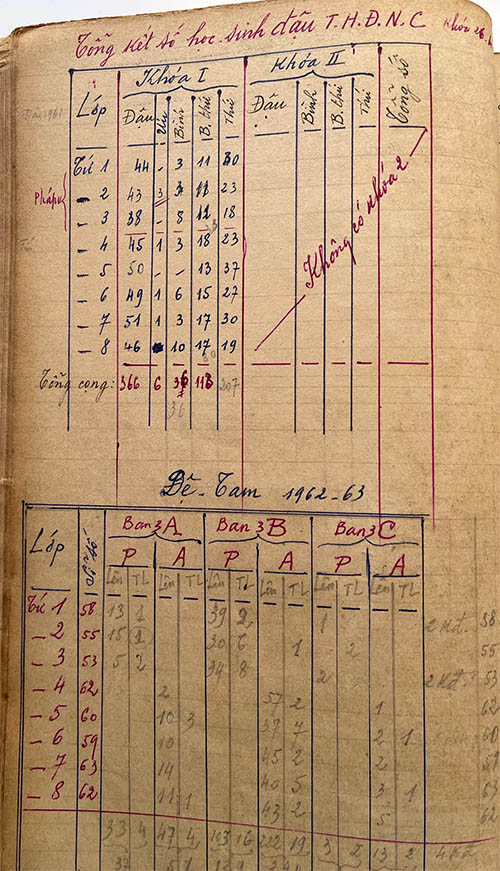 Tổng kết số học-sinh đậu T.H.Đ.N.C Khóa 26.
Lớp Khóa I Khóa II Tổng số
Đậu Ưu Bình B. thứ Thứ Đậu Bình B. thứ Thứ
Tứ 1 44 - 3 11 30
Pháp
- 2 43 3 23
- 3 38 - 8 12 18
- 4 45 1 3 18 23
- 5 50 - - 13 37
- 6 49 1 6 15 27
- 7 51 1 3 17 30
- 8 46 10 17 19
Không có khóa 2
Tổng cọng: 366 6 36 118 207
36
Đệ-Tam 1962-63
Lớp Sĩ số Ban 3A Ban 3B Ban 3C
P A P A P A
Lên TL Lên TL Lên TL Lên TL Lên TL Lên TL
Tứ 1 58 13 1 39 2 1 2 Kđ. 58
- 2 55 15 1 30 6 1 2 55
- 3 53 5 2 34 8 2 2 Kđ. 53
- 4 62 2 57 2 1 62
- 5 60 10 3 37 7 2 1 60
- 6 59 10 45 2 2
- 7 63 14 40 5 3 1 63
- 8 62 11 1 43 2 5 62
33 4 47 4 103 16 222 19 3 2 13 2 4 Kđ
37 51